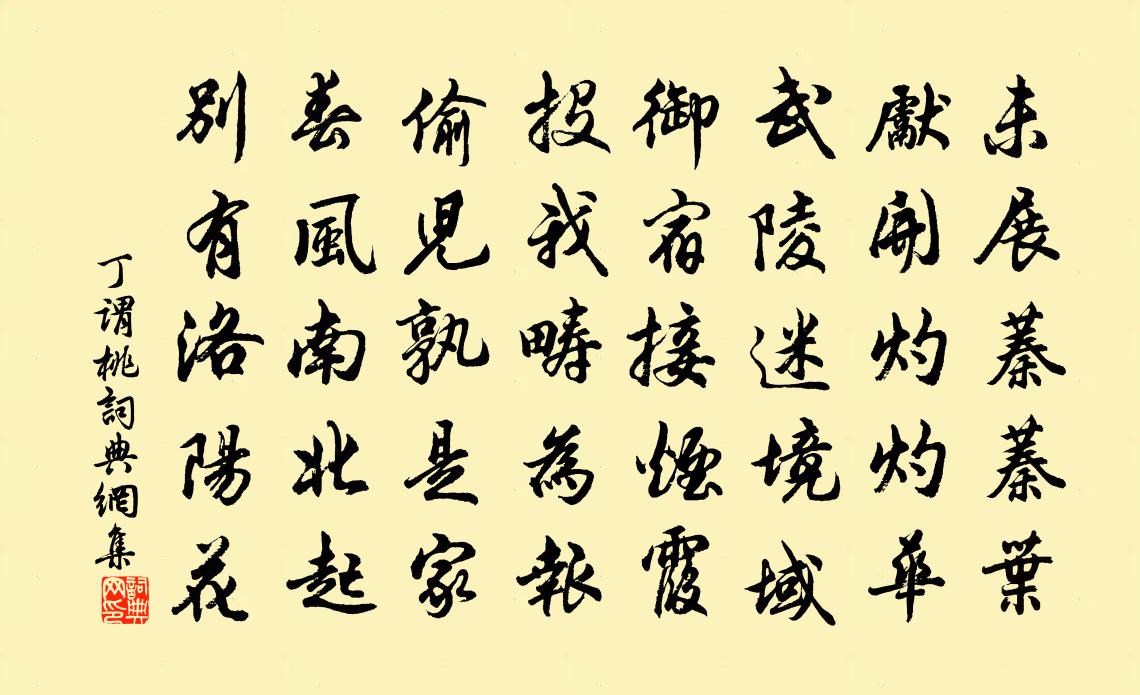 未展蓁蓁葉
獻開灼灼華
武陵迷境域
御宿接煙霞
投我疇為報
偷兒孰是家
春風南北起
別有洛陽花
丁謂桃詞典網集
詞典網印